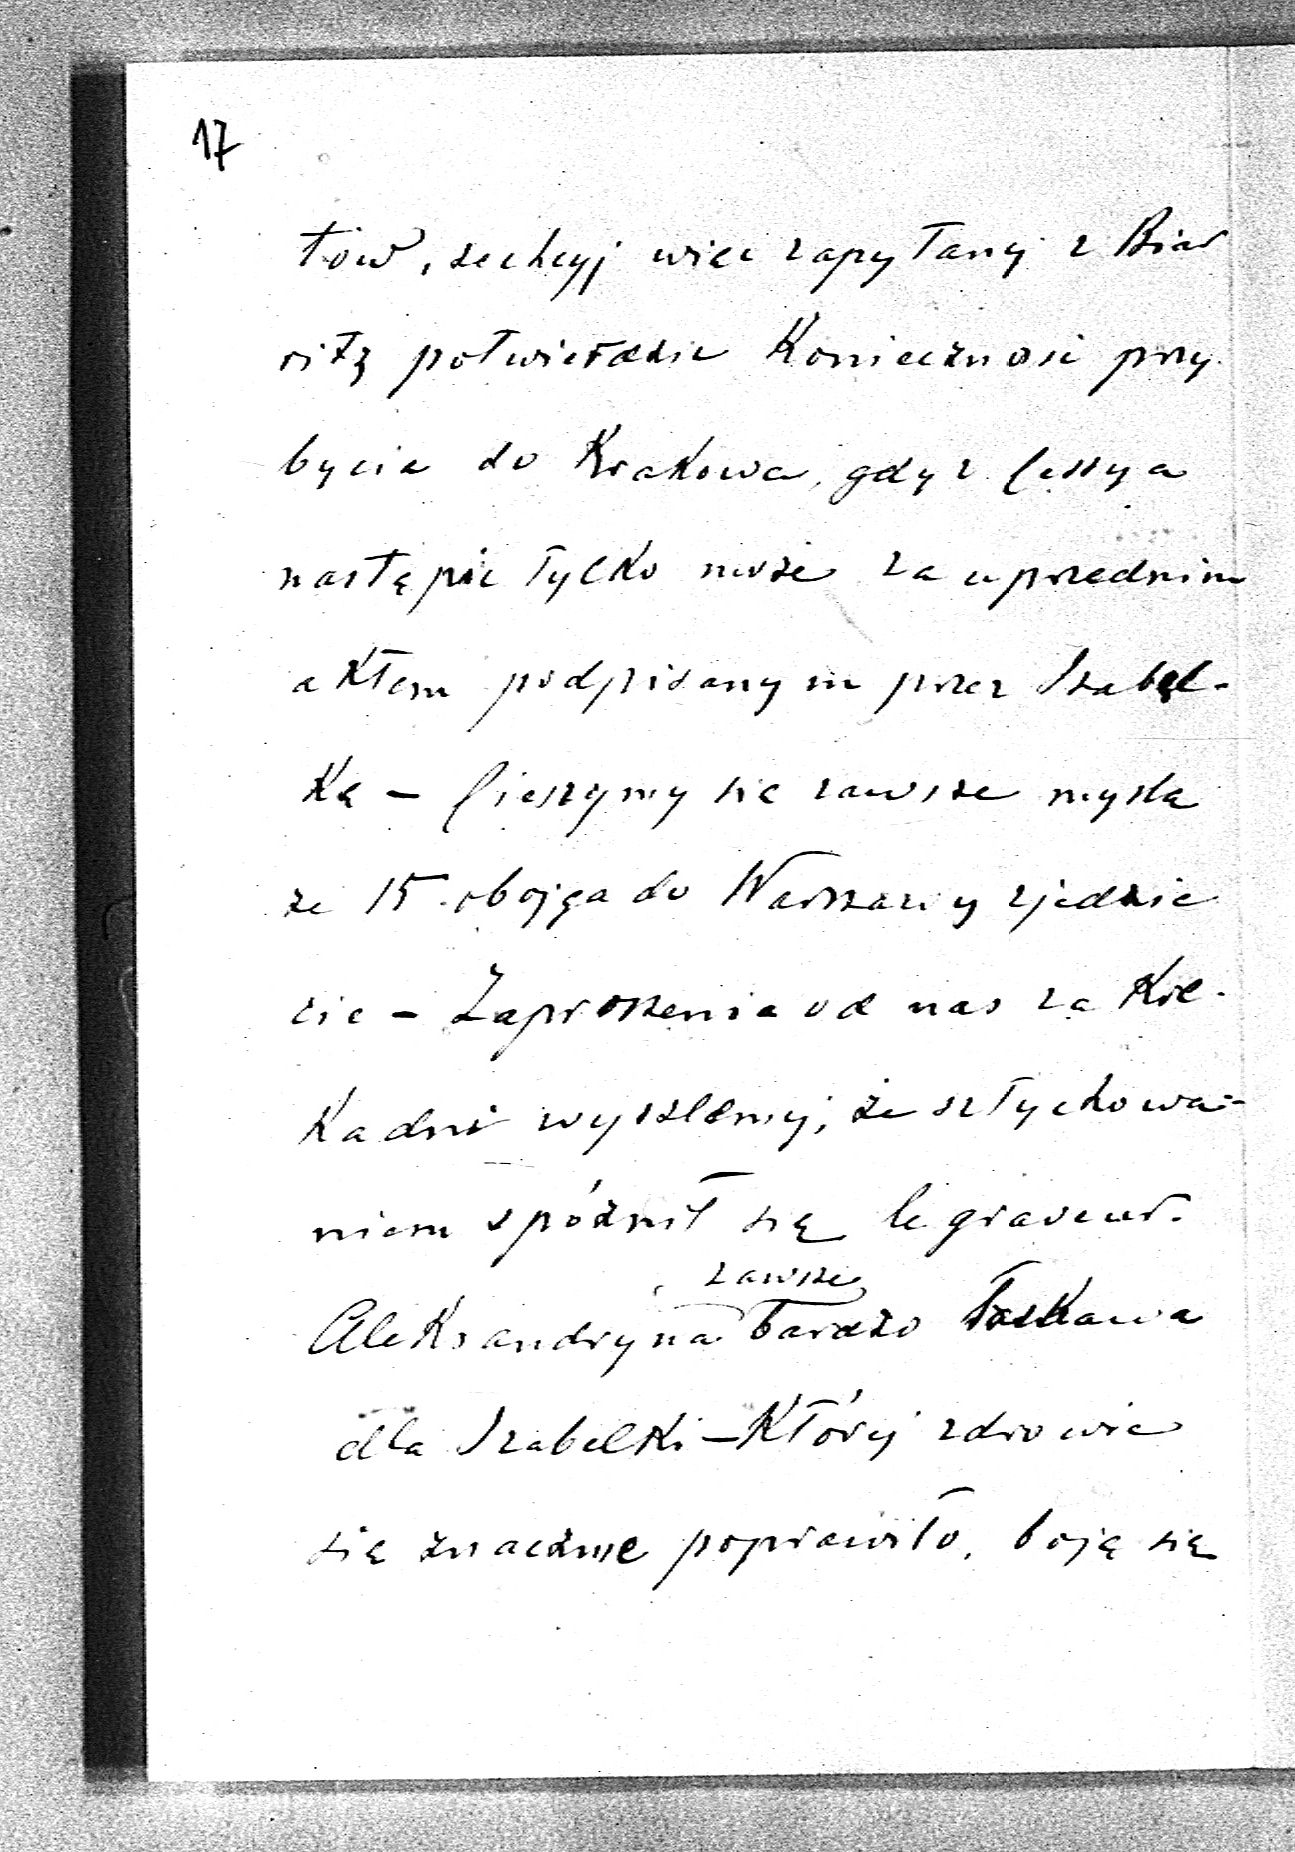 17
tów, zechcyj więc zapytany z Biar
ritz potwierdzić Konieczność przy
bycia do Krakowa, gdyż Cessya
nastąpić tylko może za uprzednim
aktem podpisanym przez Izabel-
Kę – Cieszymy się zawsze myślą
że 15. obojga do Warszawy zjedzie
cie – Zaproszenia od nas za Kil-
Ka dni wyszlemy, że sztychowa-
niem spóźnił się le graveur.
zawsze
Aleksandryna bardzo łaskawa
dla Izabelki – Której zdrowie
się znacznie poprawiło, boję się